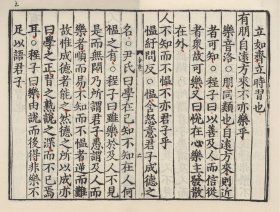 立如齊立時習也
有朋自遠方來不亦樂乎
樂音洛○朋同類也自遠方來則近
者可知○程子曰以善及人而信從
者衆故可樂又曰說在心樂主發散
在外
人不知而不慍不亦君子乎
慍紆問反○慍含怒意君子成德之
名○尹氏曰學在己知不知在人何
慍之有○程子曰雖樂於及人不見
是而無悶乃所謂君子愚謂及人而
樂者順而易不知而不慍者逆而難
故惟成德者能之然德之所以成亦
曰學之正習之熟說之深而不已焉
耳○程子曰樂由說而後得非樂不
足以語君子